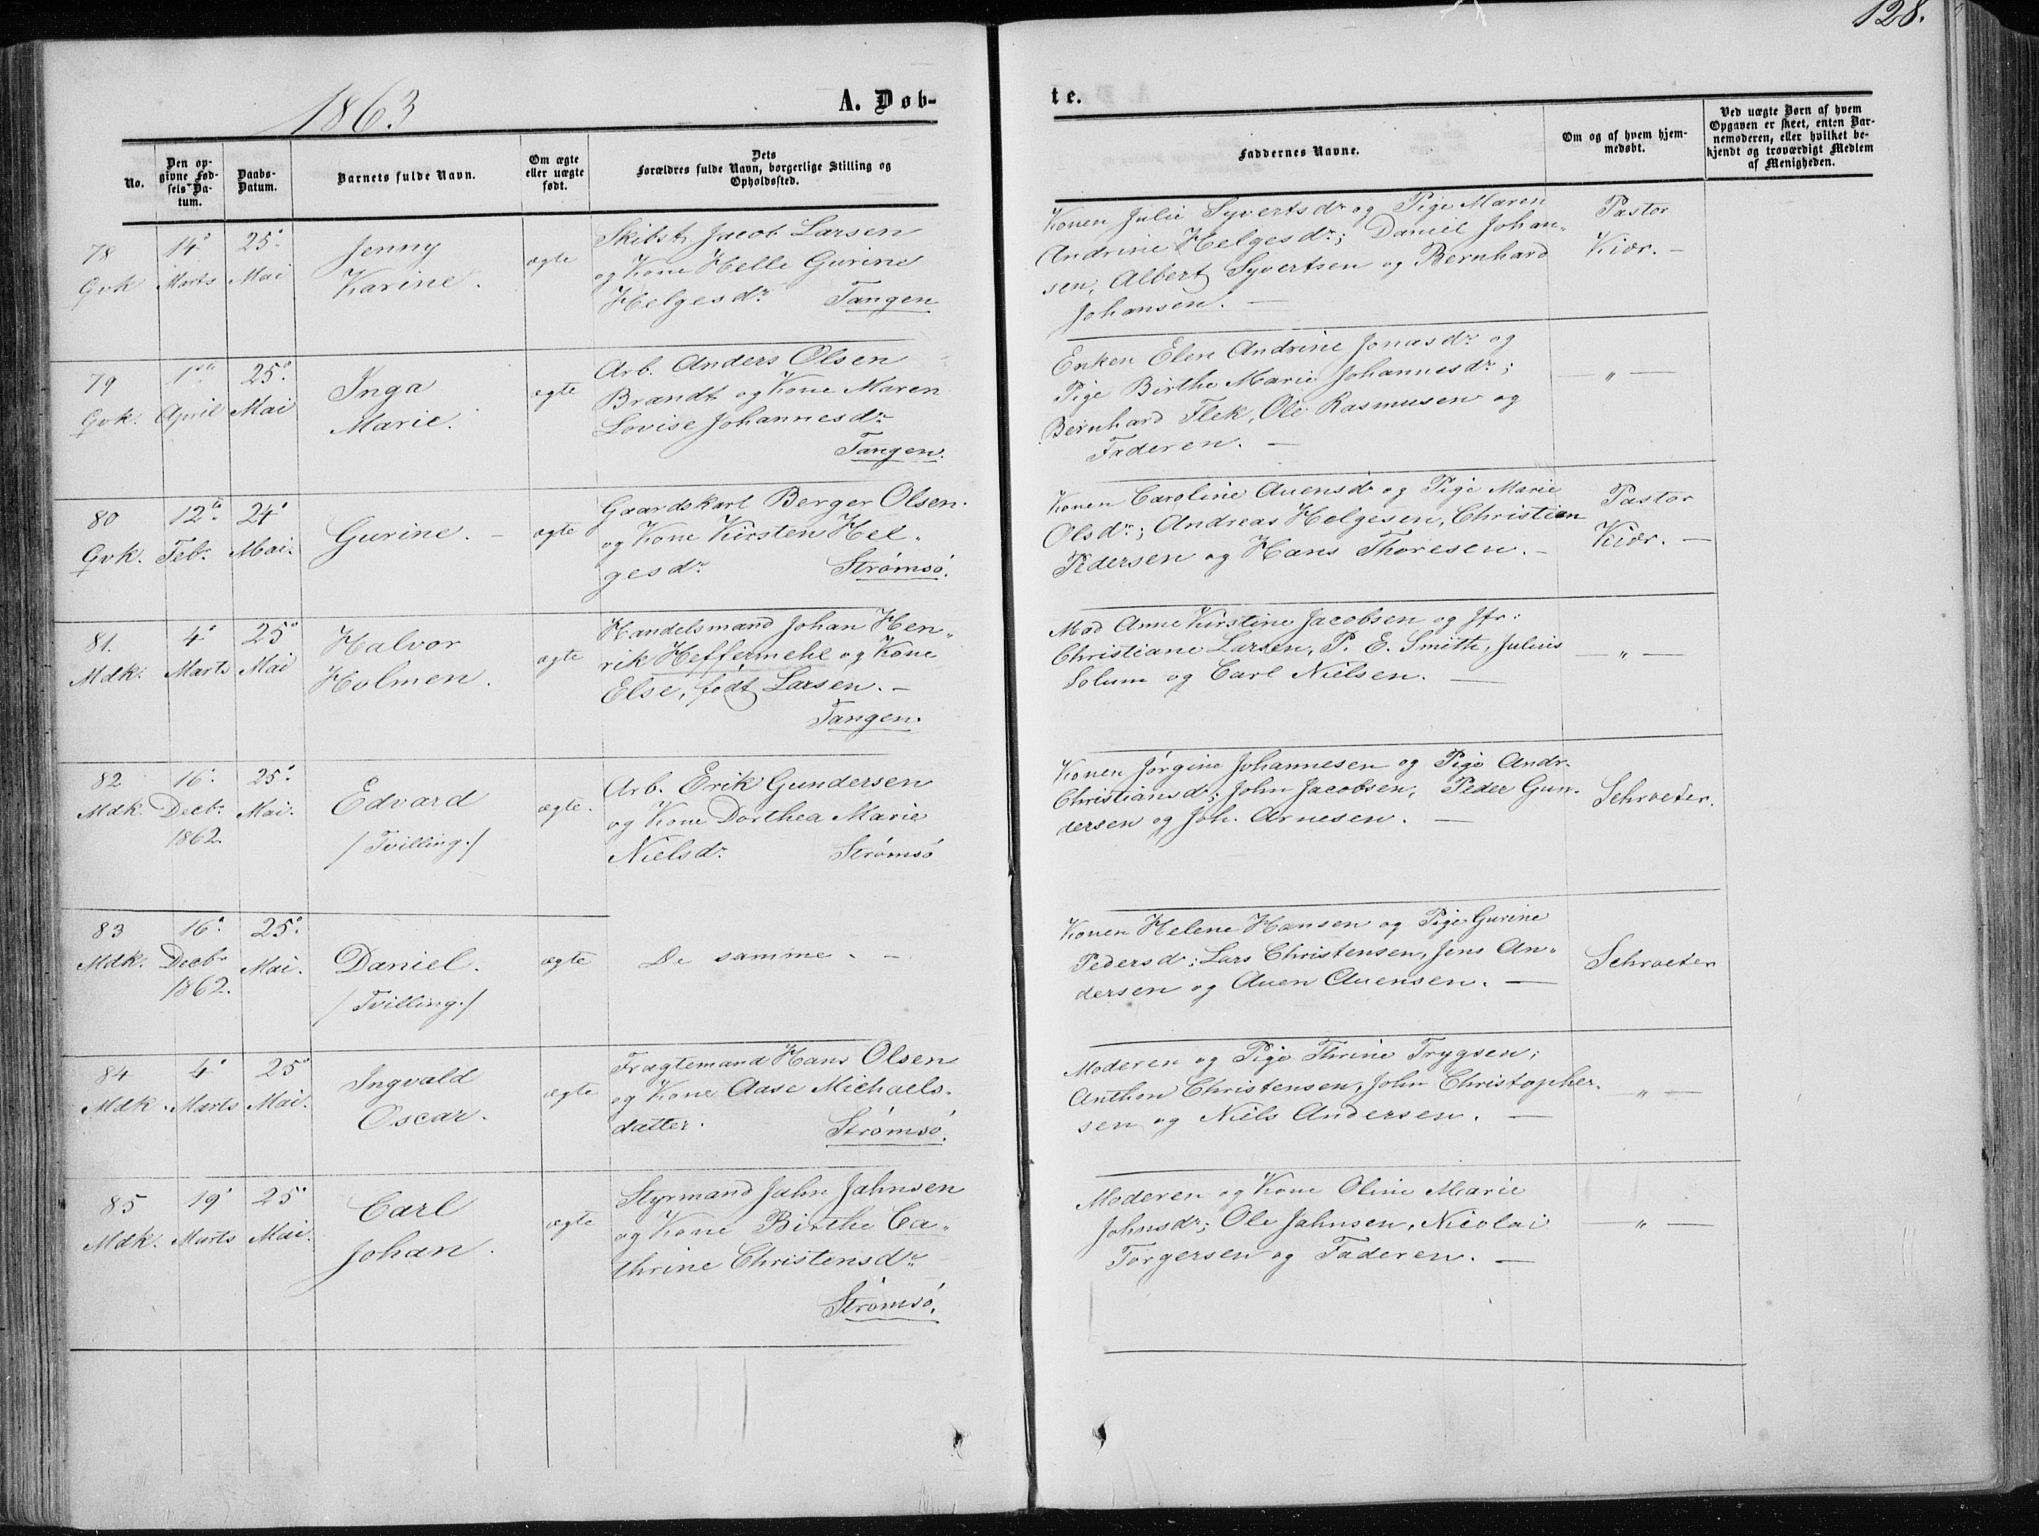 128.
1863
A. Døb-
te.
No.
Den op-
givne Fød-
sels-Da-
tum.
Daabs-
Datum.
Barnets fulde Navn.
Om ægte
eller uægte
født.
Dets
Forældres fulde Navn, borgerlige Stilling og
Opholdssted.
Faddernes Navne.
Om og af hvem hjem-
medøbt.
Ved uægte Børn af hvem
Opgaven er skeet, enten Bar-
nemoderen, eller hvilket be-
kjendt og troværdigt Medlem
af Menigheden.
78
Qvk
14de
Marts
25de
Mai
Jenny
Karine.
ægte
Skibst. Jacob Larsen
og Kone Helle Gurine
Helgesdr. Tangen
Konen Julie Syvertsdr og Pige Maren
Andrine Helgesdr; Daniel Johan-
sen, Albert Syvertsen og Bernhard
Johansen. —
Pastor
Kiær. —
79
Qvk.
1ste
April
25de
Mai
Inga
Marie.
ægte
Arb. Anders Olsen
Brandt og Kone Maren
Lovise Johannesdr
Tangen.
Enken Elen Andrine Jonasdr og
Pige Birthe Marie Johannesdr;
Bernhard Flek, Ole Rasmusen og
Faderen. —
— „ —
80
Qvk.
12te
Febr.
24de
Mai.
Gurine. —
ægte
Gaardskarl Berger Olsen
og Kone Kirsten Hel-
gesdr. Strømsø.
Konen Caroline Auensdr og Pige Marie
Olsdr; Andreas Helgesen, Christian
Pedersen og Hans Thoresen. —
Pastor
Kiær. —
81.
Mdk.
4de
Marts
25de
Mai
Halvor
Holmen.
ægte
Handelsmand Johan Hen-
rik Heffermehl og Kone
Else, født Larsen. —
Tangen.
Mad Anne Kirstine Jacobsen og Jfr:
Christiane Larsen, P. E. Smith, Julius
Solum og Carl Nielsen. —
— „ —
82
Mdk.
16de
Decbr
1862.
25de
Mai.
Edvard
/Tvilling./
ægte.
Arb. Erik Gundersen
og Kone Dorthea Marie
Nielsdr. Strømsø
Konen Jørgine Johannesen og Pige Andr.
Christiansdr; John Jacobsen, Peder Gun-
dersen og Joh. Arnesen. —
Schroeter.
83
Mdk.
16de
Decbr
1862.
25de
Mai.
Daniel.
/Tvilling./
ægte
De samme. —
Konen Helene Hansen og Pige Gurine
Pedersd; Lars Christensen, Jens An-
dersen og Auen Auensen. —
Schroeter
84
Mdk.
4de
Marts
25de
Mai.
Ingvald
Oscar.
ægte
Fragtemand Hans Olsen
og Kone Aase Michaels-
datter. Strømsø.
Moderen og Pige Thrine Trygsen;
Anthon Christensen, John Christopher-
sen og Niels Andersen. —
— „ —
85
Mdk.
19de
Marts
25de
Mai.
Carl
Johan.
ægte
Styrmand Jahn Jahnsen
og Kone Birthe Ca-
thrine Christensdr
Strømsø.
Moderen og Kone Oline Marie
Johnsdr; Ole Jahnsen, Nicolai
Torgersen og Faderen. —
— „ —